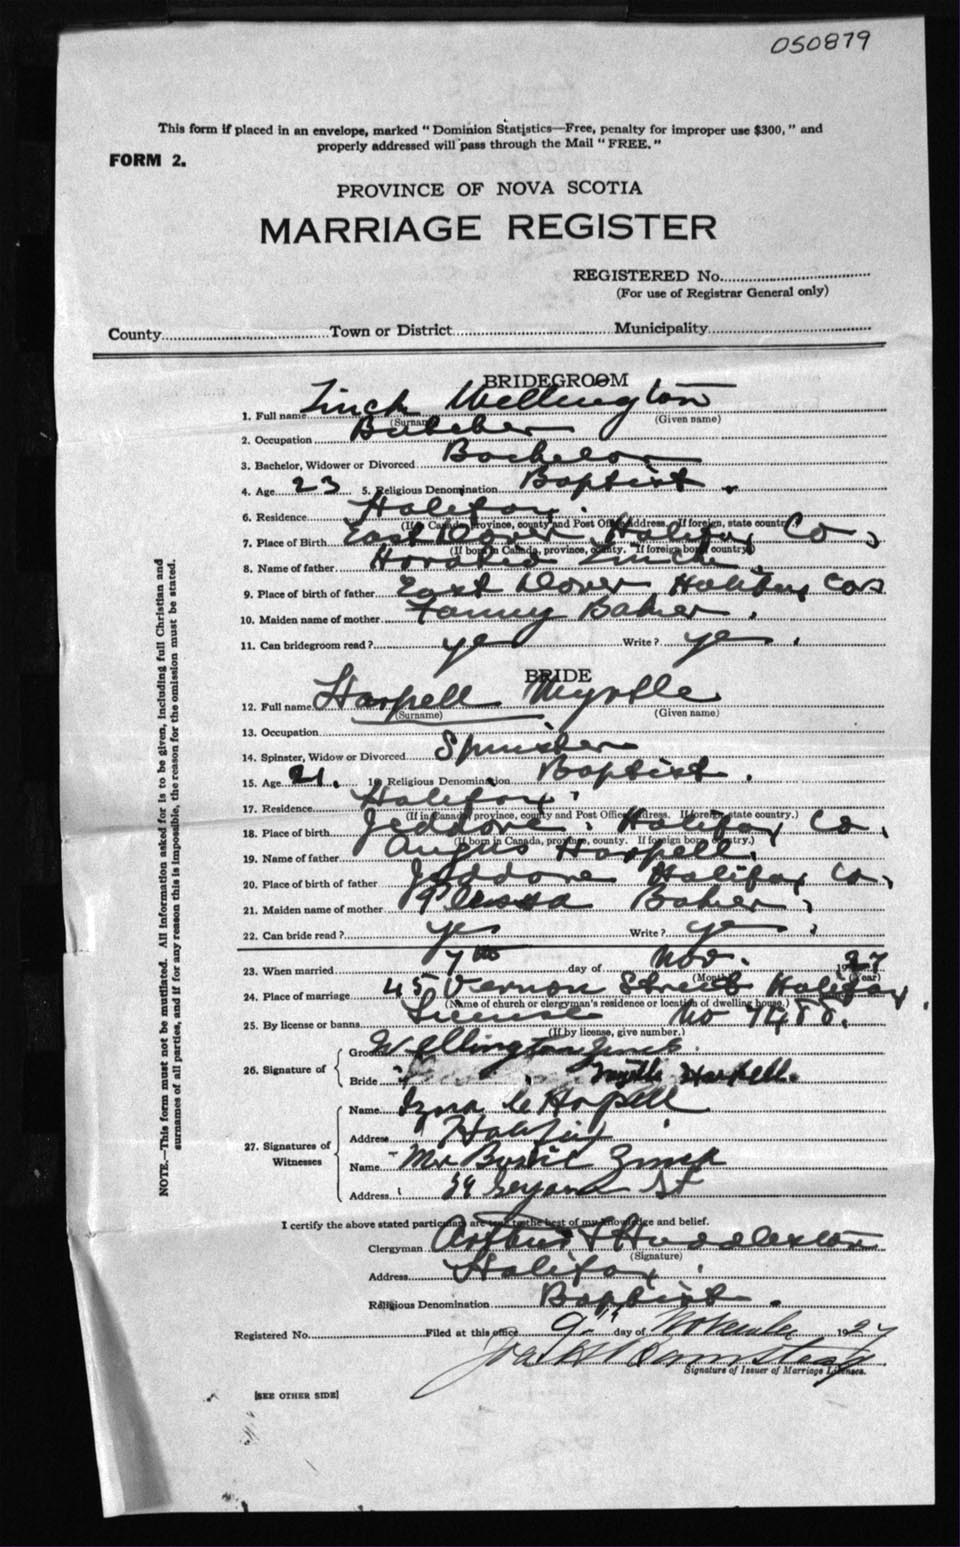 050879
This form if placed in an envelope, marked "Dominion Statistics—Free, penalty for improper use $300," and
properly addressed will pass through the Mail "FREE."
FORM 2.
PROVINCE OF NOVA SCOTIA
MARRIAGE REGISTER
REGISTERED No.
(For use of Registrar General only)
County Town or District Municipality
BRIDEGROOM
1. Full name Zinck Wellington
(Surname) (Given name)
2. Occupation Butcher
3. Bachelor, Widower or Divorced Bachelor
4. Age 23 5. Religious Denomination Baptist.
6. Residence Halifax.
(If in Canada, province, county and Post Office Address. If foreign, state country.)
7. Place of Birth East Dover, Halifax Co,
(If born in Canada, province, county. If foreign born country)
8. Name of father Horatio Zinck.
9. Place of birth of father East Dover Halifax Co
10. Maiden name of mother Fanny Baker.
11. Can bridegroom read? yes Write? yes.
BRIDE
12. Full name Harpell Myrtle
(Surname) (Given name)
13. Occupation
14. Spinster, Widow or Divorced Spinster
15. Age 21. 16 Religious Denomination Baptist.
17. Residence Halifax.
(If in Canada, province, county and Post Office address. If foreign, state country.)
18. Place of birth Jeddore. Halifax Co,
(If born in Canada, province, county. If foreign born country.)
19. Name of father Angus Harpell.
20. Place of birth of father Jeddore Halifax Co,
21. Maiden name of mother Baker,
22. Can bride read? yes Write? yes.
23. When married 7th day of Nov. 1927
(Month) (Year)
24. Place of marriage 45 Vernon Street Halifax.
(Name of church or clergyman's residence or location of dwelling house.)
25. By license or banns License No 7488.
(If by license, give number.)
26. Signature of
Groom Wellington Zinck.
Bride Myrtle Harpell.
27. Signatures of Witnesses
Name Harpell
Address Halifax
Name Mr Zinck
Address St
NOTE.—This form must not be mutilated. All information asked for is to be given, including full Christian and
surnames of all parties, and if for any reason this is impossible, the reason for the omission must be stated.
I certify the above stated particulars are true to the best of my knowledge and belief.
Clergyman Arthur Huddleston
(Signature)
Address Halifax.
Religious Denomination Baptist.
Registered No. Filed at this office 9th day of November 1927
Signature of Issuer of Marriage Licenses.
[SEE OTHER SIDE]